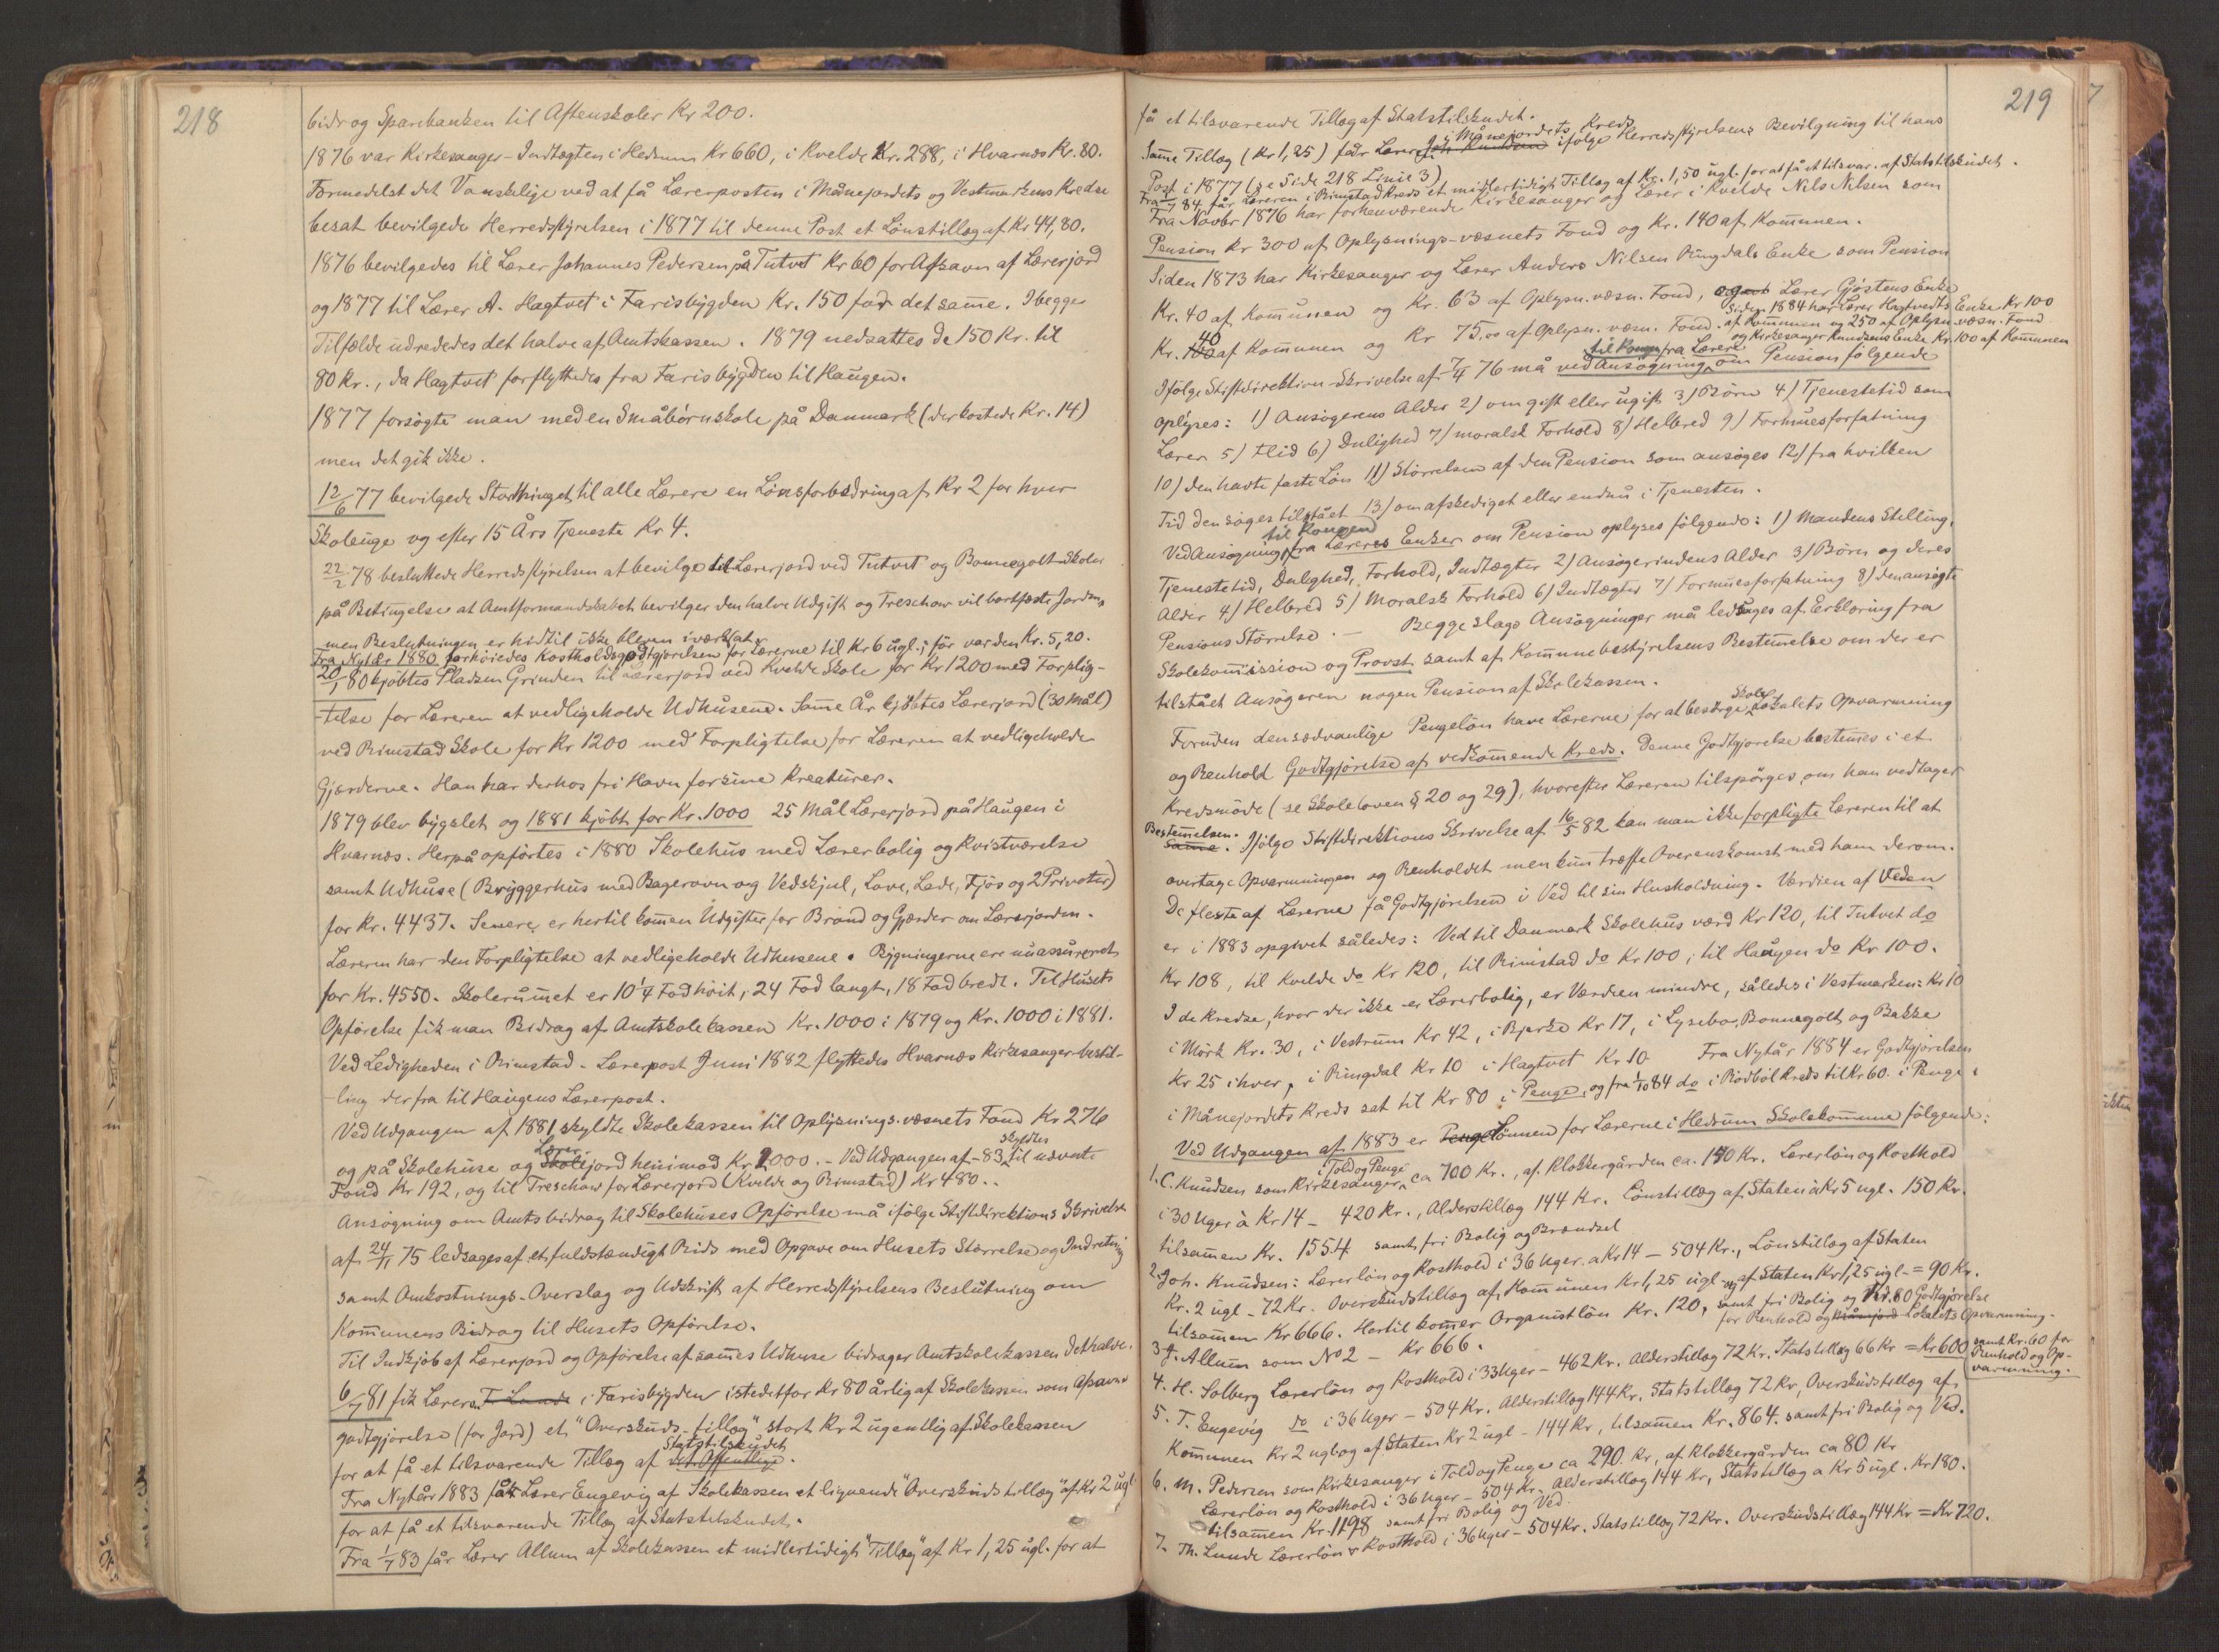 218
bidrog Sparebanken til Aftenskoler Kr 200.
1876 var Kirkesanger-Indtægten i Hedrum Kr 660, i Kvelde Kr. 288, i Hvarnæs Kr. 80.
Formedelst det Vanskelige ved at få Lærerposten i Månejordets og Vestmarkens Kredse
besat bevilgede Herredsstyrelsen i 1877 til denne Post et Lönstillæg af Kr 44,80.
1876 bevilgedes til Lærer Johannes Pedersen på Tutvet Kr 60 for Afsavn af Lærerjord
og 1877 til Lærer A. Hagtvet i Farisbygden Kr. 150 for det samme. I begge
Tilfælde udrededes det halve af Amtskassen. 1879 nedsattes de 150 Kr. til
80 Kr., da Hagtvet forflyttedes fra Farisbygden til Haugen.
1877 forsögte man med en Småbörnskole på Danmark (der kostede Kr. 14)
men det gik ikke.
12/6 77 bevilgede Storthinget til alle Lærere en Lönsforbedring af Kr 2 for hver
Skoleuge og efter 15 Års Tjeneste Kr 4.
22/2 78 besluttede Herredsstyrelsen at bevilge til Lærerjord ved Tutvet og Bonnegolt Skoler
på Betingelse at Amtformandskabet bevilger den halve Udgift og Treschow vil bortfæste Jorden,
men Beslutningen er hidtil ikke bleven iværksat.
Fra Nytår 1880 forhöiedes Kostholdsgodtgjörelsen for Lærerne til Kr 6 ugl.; för var den Kr. 5,20.
20/1 80 kjöbtes Pladsen Grinden til Lærerjord ved Kvelde Skole for Kr 1200 med Forplig-
telse for Læreren at vedligeholde Udhusene. Samme År kjöbtes Lærerjord (30 Mål)
ved Rimstad Skole for Kr 1200 med Forpligtelse for Læreren at vedligeholde
Gjærderne. Han har derhos fri Havn for sine Kreaturer.
1879 blev bygslet og 1881 kjöbt for Kr. 1000 25 Mål Lærerjord på Haugen i
Hvarnæs. Herpå opförtes i 1880 Skolehus med Lærerbolig og Kvistværelse
samt Udhuse (Bryggerhus med Bagerovn og Vedskjul, Lave, Lade, Fjös og 2 Privoter)
for Kr. 4437. Senere er hertil kommen Udgifter for Brönd og Gjærder om Lærerjorden.
Læreren har den Forpligtelse at vedligeholde Udhusene. Bygningerne ere nu assureret
for Kr. 4550. Skolerummet er 10¼ Fod höit, 24 Fod langt, 18 Fod bredt. Til Husets
Opförelse fik man Bidrag af Amtskolekassen Kr. 1000 i 1879 og Kr. 1000 i 1881.
Ved Ledigheden i Rimstad-Lærerpost Juni 1882 flyttedes Hvarnæs Kirkesanger-bestil-
ling derfra til Haugens Lærerpost.
Ved Udgangen af 1881 skyldte Skolekassen til Oplysnings-væsnets Fond Kr 276
og på Skolehuse og Skolejord Lærer henimod Kr 2000. – Ved Udgangen af -83 skyldtes til nævnte
Fond Kr 192, og til Treschow for Lærerjord (Kvelde og Rimstad) Kr 480..
Ansögning om Amtsbidrag til Skolehuses Opförelse må ifölge Stiftdirektions Skrivelse
af 24/1 75 ledsages af et fuldstændigt Rids med Opgave om Husets Störrelse og Indretning
samt Omkostnings-Overslag og Udskrift af Herredsstyrelsens Beslutning om
Kommunens Bidrag til Husets Opförelse.
Til Indkjöb af Lærerjord og Opförelse af sammes Udhuse bidrager Amtskolekassen Det halve.
6/7 81 fik Læreren T. Lunde i Farisbygden istedetfor Kr 80 årlig af Skolekassen som Afsavns
godtgjörelse (for Jord) et "Overskuds-tillæg" stort Kr 2 ugentlig af Skolekassen
for at få et tilsvarende Tillæg af det Offentlige Statstilskudet.
Fra Nytår 1883 får Lærer Engevig af Skolekassen et lignende "Overskuds tillæg" af Kr 2 ugl.
for at få et tilsvarende Tillæg af Statstilskudet.
Fra 1/7 83 får Lærer Allum af Skolekassen et midlertidigt "Tillæg" af Kr 1,25 ugl. for at
219
få et tilsvarende Tillæg af Statstilskudet.
Samme Tillæg (Kr 1,25) får Læreren Joh. Knudsen i Månejordets Kreds ifölge Herredsstyrelsens Bevilgning til hans
Post i 1877 (se Side 218 Linie 3)
Fra 1/7 84 får Læreren i Rimstad Kreds et midlertidigt Tillæg af Kr. 1,50 ugl. for at få et tilsvar. af Statstilskudet.
Fra Novbr 1876 har forhenværende Kirkesanger og Lærer i Kvelde Nils Nilsen som
Pension Kr 300 af Oplysnings-væsnets Fond og Kr. 140 af Kommunen.
Siden 1873 har Kirkesanger og Lærer Anders Nilsen Ringdals Enke som Pension
Kr. 40 af Kommunen og Kr. 63 af Oplysn. væsn. Fond, Lærer Gjöstens Enke
Kr. 40 af Kommunen og Kr 75,00 af Oplysn. væsn. Fond. Siden 1884 har Lærer Hagtvedts Enke Kr 100
af Kommunen og 250 af Oplysn.-væsn. Fond
og Kirkesanger Knudsens Enke Kr. 100 af Kommunen
Ifölge Stiftdirektion-Skrivelse af 7/4 76 må ved Ansögning til Kongen fra Lærere om Pension fölgende
oplyses: 1) Ansögerens Alder 2) om gift eller ugift 3) Börn 4) Tjenestetid som
Lærer 5) Flid 6) Dulighed 7) moralsk Forhold 8) Helbred 9) Formuesforfatning
10) den havte faste Lön 11) Störrelsen af den Pension som ansöges 12) fra hvilken
Tid den söges tilstået 13) om afskediget eller endnu i Tjenesten.
Ved Ansögning til Kongen fra Læreres Enker om Pension oplyses fölgende: 1) Mandens Stilling,
Tjenestetid, Dulighed, Forhold, Indtægter 2) Ansögerindens Alder 3) Börn og deres
Alder 4) Helbred 5) Moralsk Forhold 6) Indtægter 7) Formuesforfatning 8) den ansögte
Pensions Störrelse. – Begge slags Ansögninger må ledsages af Erklæring fra
Skolekommission og Provst samt af Kommunebestyrelsens Bestemmelse om der er
tilstået Ansögeren nogen Pension af Skolekassen.
Foruden den sædvanlige Pengelön have Lærerne for at besörge Skole Lokalets Opvarmning
og Renhold Godtgjörelse af vedkommende Kreds. Denne Godtgjörelse bestemmes i et
Kredsmöde (se Skoleloven § 20 og 29), hvorefter Læreren tilspörges, om han vedtager
Bestemmelsen. Ifölge Stiftdirektions Skrivelse af 16/5 82 kan man ikke forpligte Læreren til at
overtage Opvarmningen og Renholdet men kun træffe Overenskomst med ham derom.
De fleste af Lærerne få Godtgjörelsen i Ved til sin Husholdning. Værdien af Veden
er i 1883 opgivet således: Ved til Danmark Skolehus værd Kr 120, til Tutvet do
Kr 108, til Kvelde do Kr 120, til Rimstad do Kr 100, til Haugen do Kr 100.
I de Kredse, hvor der ikke er Lærerbolig, er Værdien mindre, således i Vestmarken: Kr 10
i Mörk Kr. 30, i Vestrum Kr 42, i Bjerke Kr 17, i Lysebo, Bonnegolt og Bakke
Kr 25 i hver, i Ringdal Kr 10 i Hagtvet Kr 10 Fra Nytår 1884 er Godtgjörelsen
i Månejordets Kreds sat til Kr 80 i Penge, og fra 1/10 84 do i Rödböl Kreds til Kr 60. i Penge.
Ved Udgangen af 1883 er Lönnen for Lærerne i Hedrum Skolekommune fölgende:
1. C. Knudsen som Kirkesanger i Told og Penge ca 700 Kr., af Klokkergården ca. 140 Kr. Lærerlön og Kosthold
i 30 Uger à Kr 14 – 420 Kr., Alderstillæg 144 Kr. Lönstillæg af Staten à Kr 5 ugl. 150 Kr.
tilsammen Kr. 1554 samt fri Bolig og Brændsel
2. Joh. Knudsen: Lærerlön og Kosthold i 36 Uger a Kr 14 – 504 Kr., Lönstillæg af Staten
Kr. 2 ugl – 72 Kr. Overskudstillæg af Kommunen Kr 1,25 ugl og af Staten Kr 1,25 ugl = 90 Kr.
tilsammen Kr 666. Hertil kommer Organistlön Kr. 120, samt fri Bolig og Kr. 80 Godtgjörelse
for Renhold og Lokalets Opvarmning.
3. J. Allum som No 2 – Kr 666.
4. H. Solberg Lærerlön og Kosthold i 33 Uger – 462 Kr. Alderstillæg 72 Kr. Statstillæg 66 Kr = Kr 600 samt Kr. 60 for
Renhold og Op-
varmning.
5. T. Engevig do i 36 Uger – 504 Kr. Alderstillæg 144 Kr. Statstillæg 72 Kr, Overskudstillæg af
Kommunen Kr 2 ugl og af Staten Kr 2 ugl – 144 Kr, tilsammen Kr. 864. samt fri Bolig og Ved.
6. M. Pedersen som Kirkesanger i Told og Penge ca 290. Kr, af Klokkergården ca 80 Kr
Lærerlön og Kosthold i 36 Uger – 504 Kr. Alderstillæg 144 Kr, Statstillæg a Kr 5 ugl. Kr 180.
tilsammen Kr. 1198 samt fri Bolig og Ved.
7. Th. Lunde Lærerlön & Kosthold i 36 Uger – 504 Kr. Statstillæg 72 Kr. Overskudstillæg 144 Kr = Kr 720.